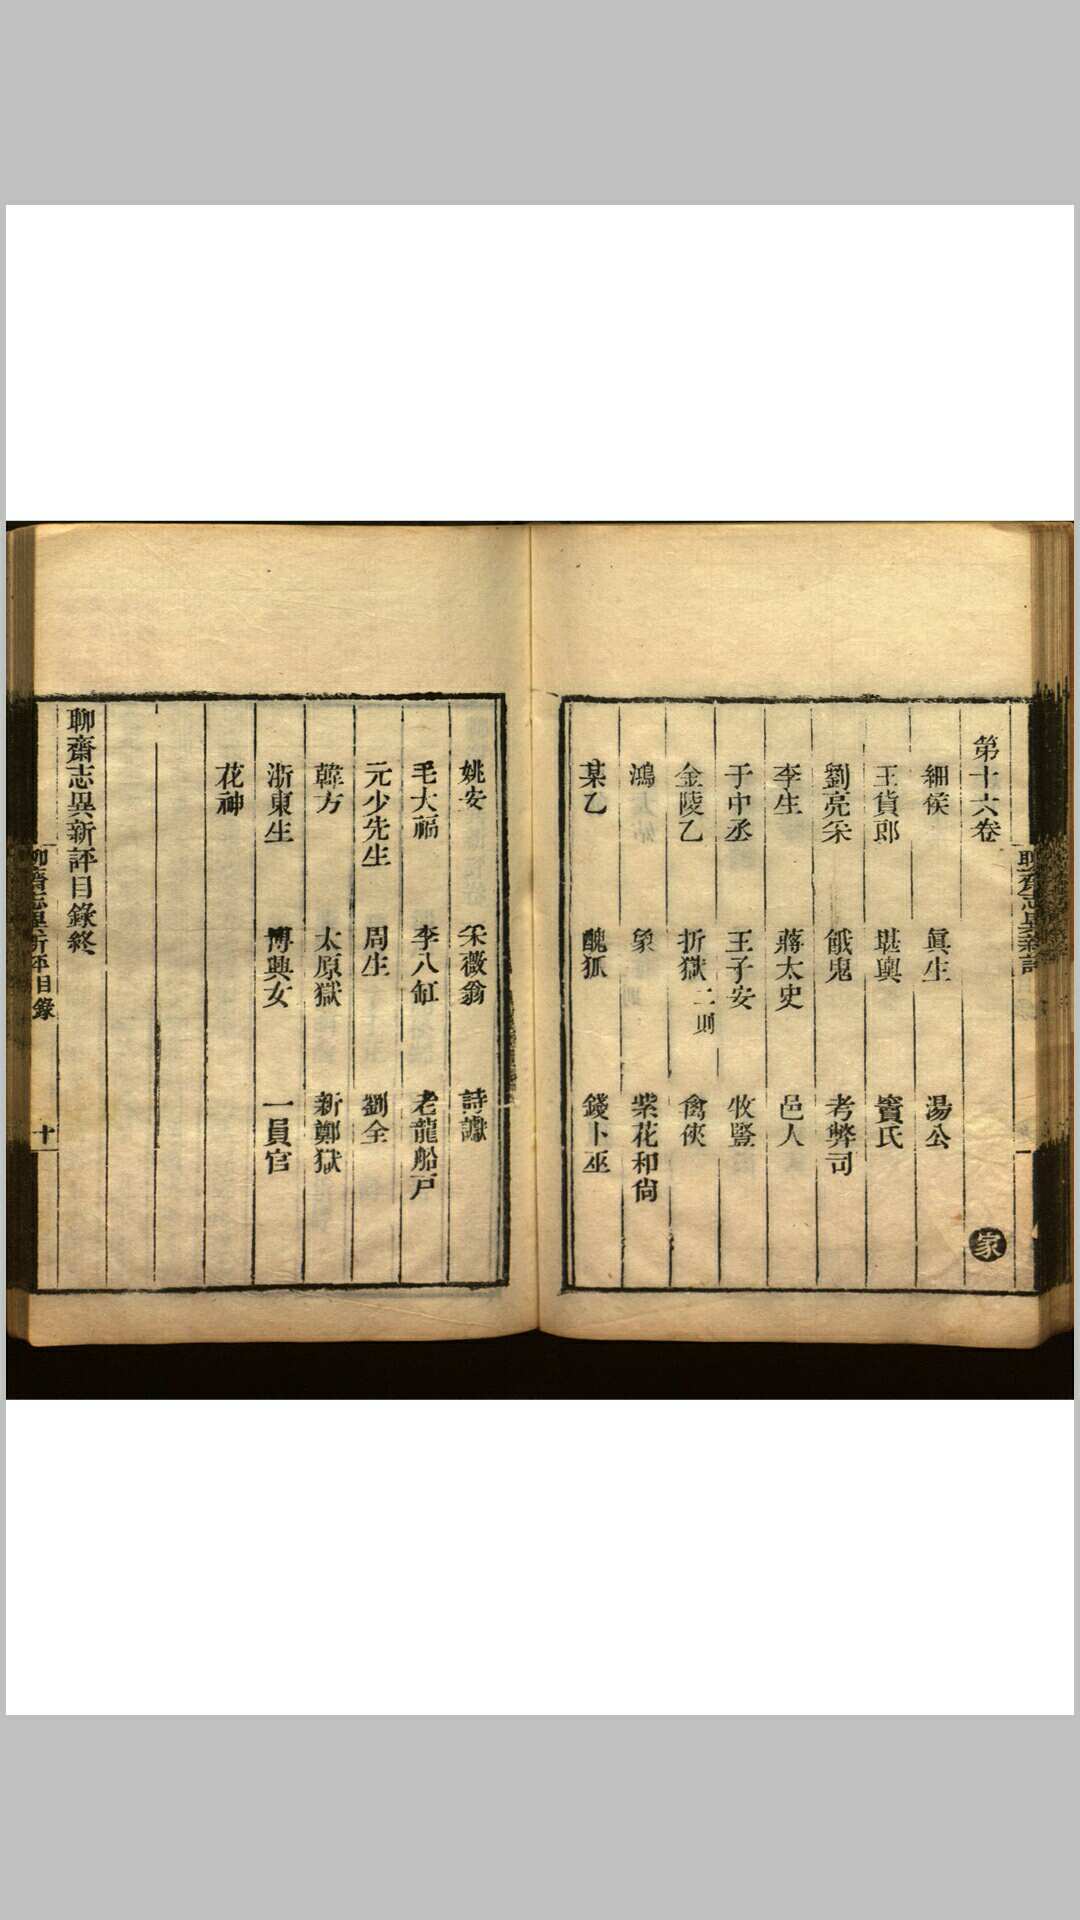 第十六卷
細侯　眞生　湯公
王貨郎　堪輿　竇氏
劉亮采　餓鬼　考弊司
李生　蔣太史　邑人
于中丞　王子安　牧豎
金陵乙　折獄二則　禽俠
鴻　象　紫花和尙
某乙　醜狐　錢卜巫
家
姚安　采薇翁　詩讞
毛大福　李八缸　老龍船戶
元少先生　周生　劉全
韓方　太原獄　新鄭獄
浙東生　博興女　一員官
花神
聊齋志異新評目錄終
聊齋志異新評目錄　十